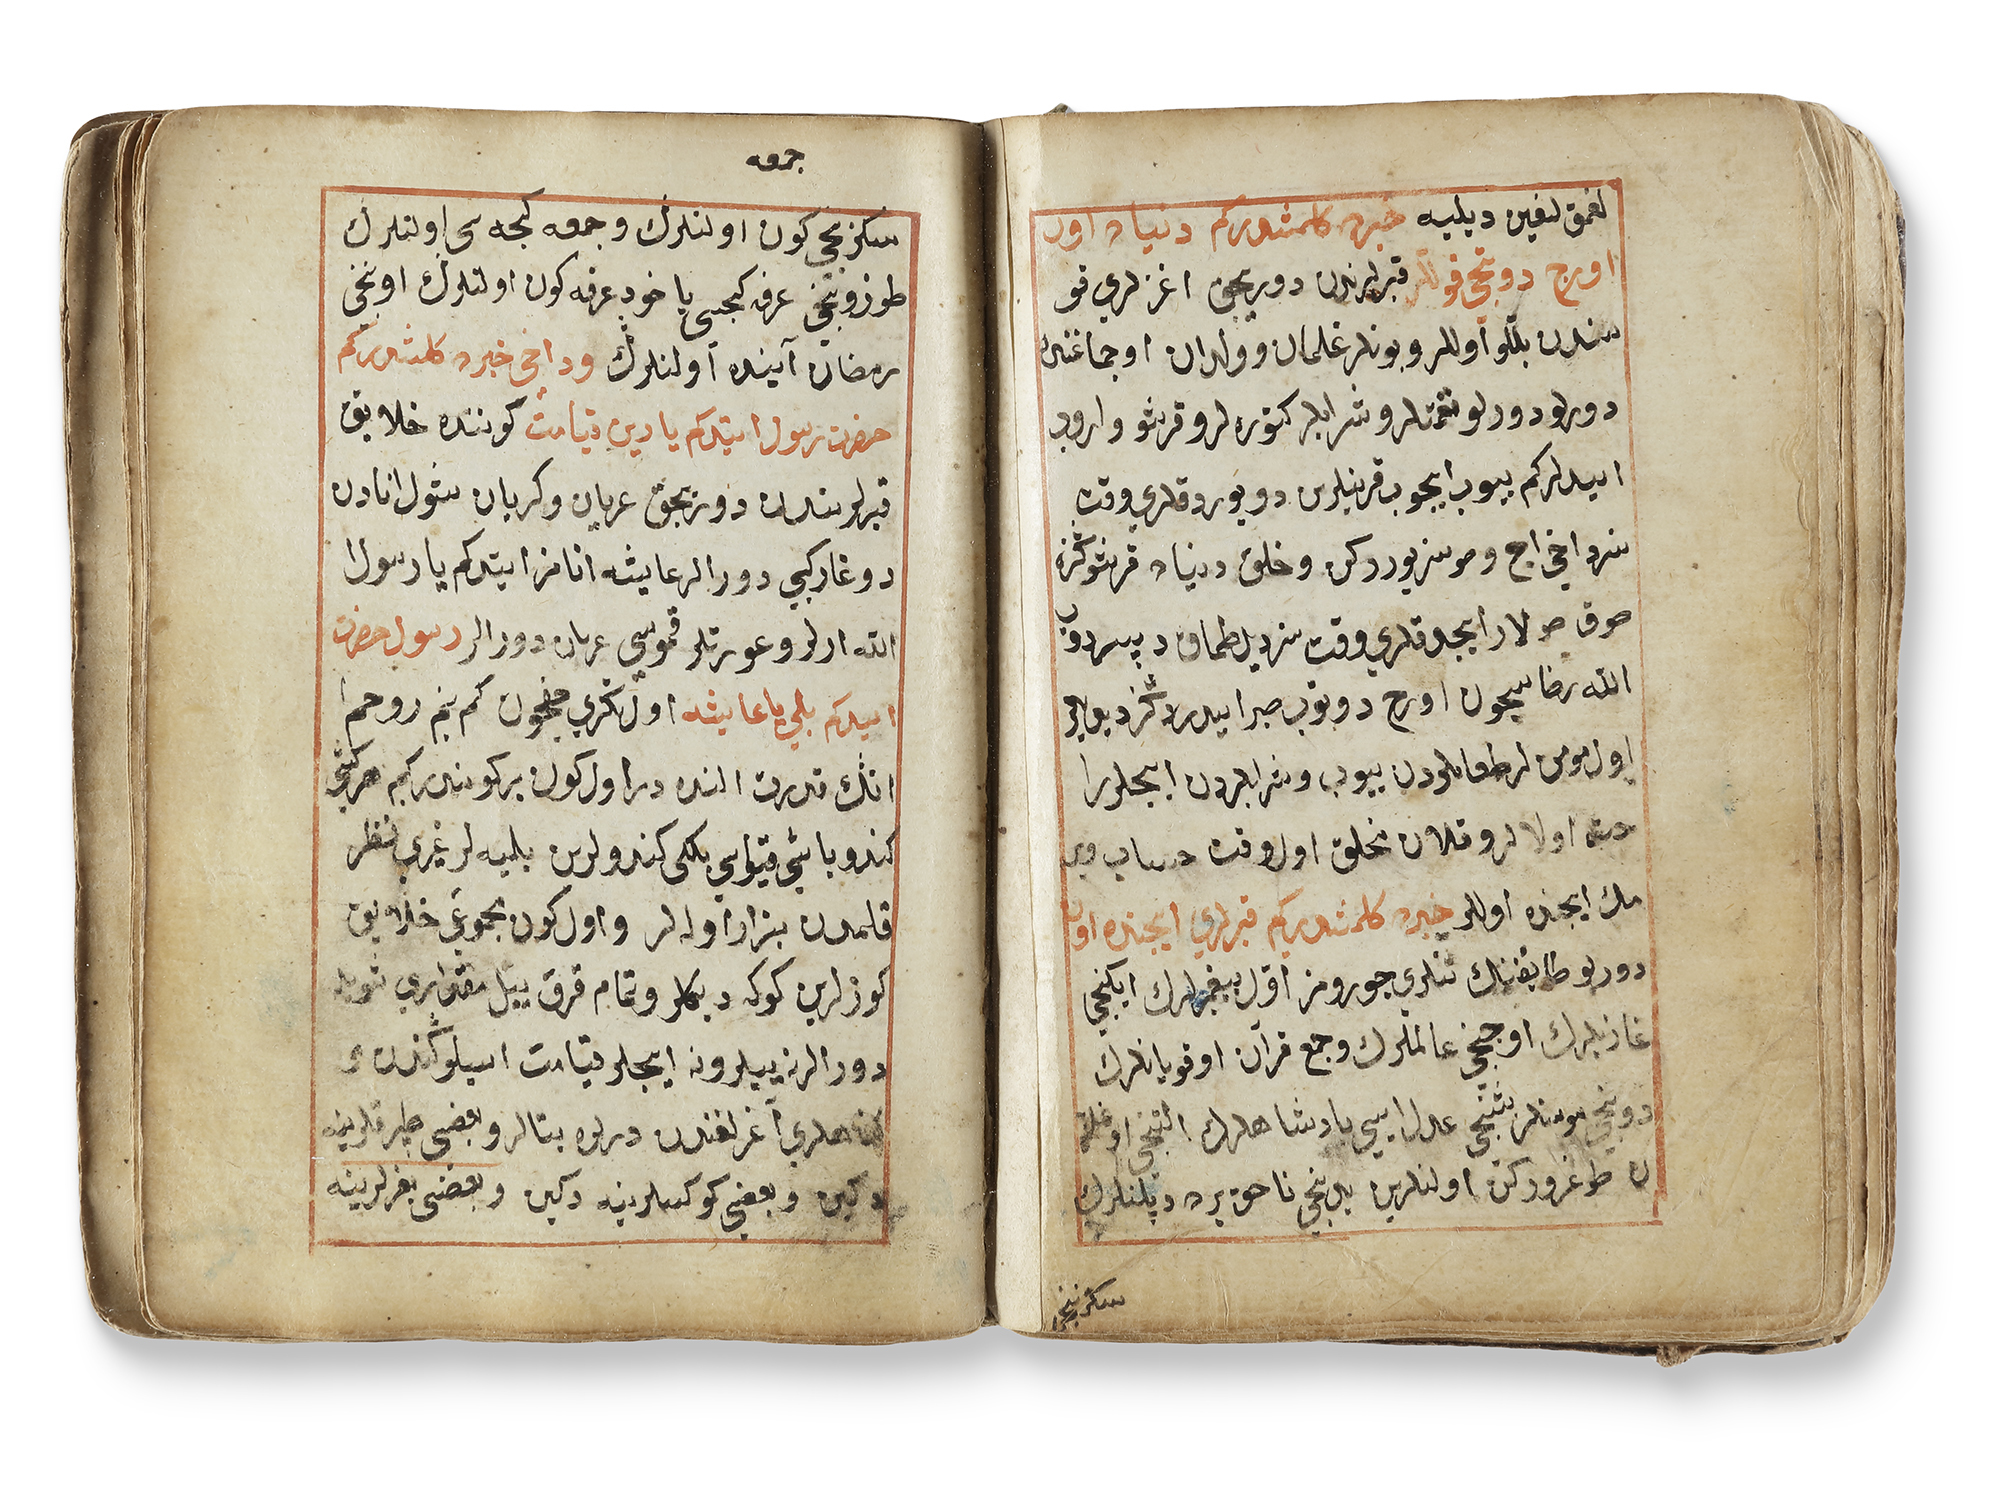 لغمق لنفین دیلیه خبرده کلمشدرکم دنیاده اون
اورج دوتیجی قوللر قبرلرندن دوریجق اغزلری قو
سندن بللو اوللر و بونلر غلمان و ولدان اوجماغندن
دورلو دورلو نعمتلر و شرابلر کتوره لر و قرشو واروب
ایدلرکم ییوب ایچوب قرینلرین دویوردقلری وقت
سزداخی اج و صوسزیوردکز و خلق دنیاده قرنشوکزه
صوق صولار ایچدقلری وقت سزدیل طماق دپسردوب
الله رضاسیچون اورج دوتوب صبر ایدردکز دیه لر
اول مومن لر طعاملردن ییوب و شرابلردن ایچلرا
حته اولالر و قلان خلق اول وقت حساب ویر
مك ایچنده اوللر خبرده کلمشدرکم قبرلری ایچنده اون
دورلو طایفنك تنلری چورومز اوّل پیغمبرلرك ایکنجی
غازیلرك اوچنجی عالملرك وجمع قرآن اوقویانلرك
دوتنجی موذنلر بشنجی عدل ایسی پادشاهلرك التنجی اوغلا
ن طوغرورکن اولنلرین یدینجی ناحق یره دپلنلرك
سکزنجی
جمعه
سکزنجی کون اولنلرك و جمعه کیجه سی اولنلرك
طوزونجی عرفه کیجسی یا خود عرفه کون اولنلرك اوننجی
رمضان آینده اولنلرك و داخی خبرده کلمشدرکم
حضرت رسول ایتدکم یارین قیامت کوننده خلایق
قبرلرندن دوریجق عریان و کریان شول انادن
دوغار کیبی دورالر عایشه انامز ایتدکم یا رسول
الله ارلر و عورتلر قموسی عریان دورالر رسول حضرت
ایدکم بلی یا عایشه اول تکری حقیچون کم بنم روحم
انك قدرت الندە در اول کون بر کوندرکم هر کشی
کندو باشی قیواسی بلکی کندولرین بلمیه لر غیری نظر
قلمدن بیزار اوله لر و اول کون مجموعی خلایق
کوزلرین کوکه دیکلر و تمام قرق ییل مقداری شویله
دورالر نه ییلر و نه ایچلر قیامت اسیلوکندن و
کناهلری آغرلغندن درلوه بتالر و بعضی طپرقلرینه
دکین و بعضی کوکسلرینه دکین و بعضی بغزلرینه